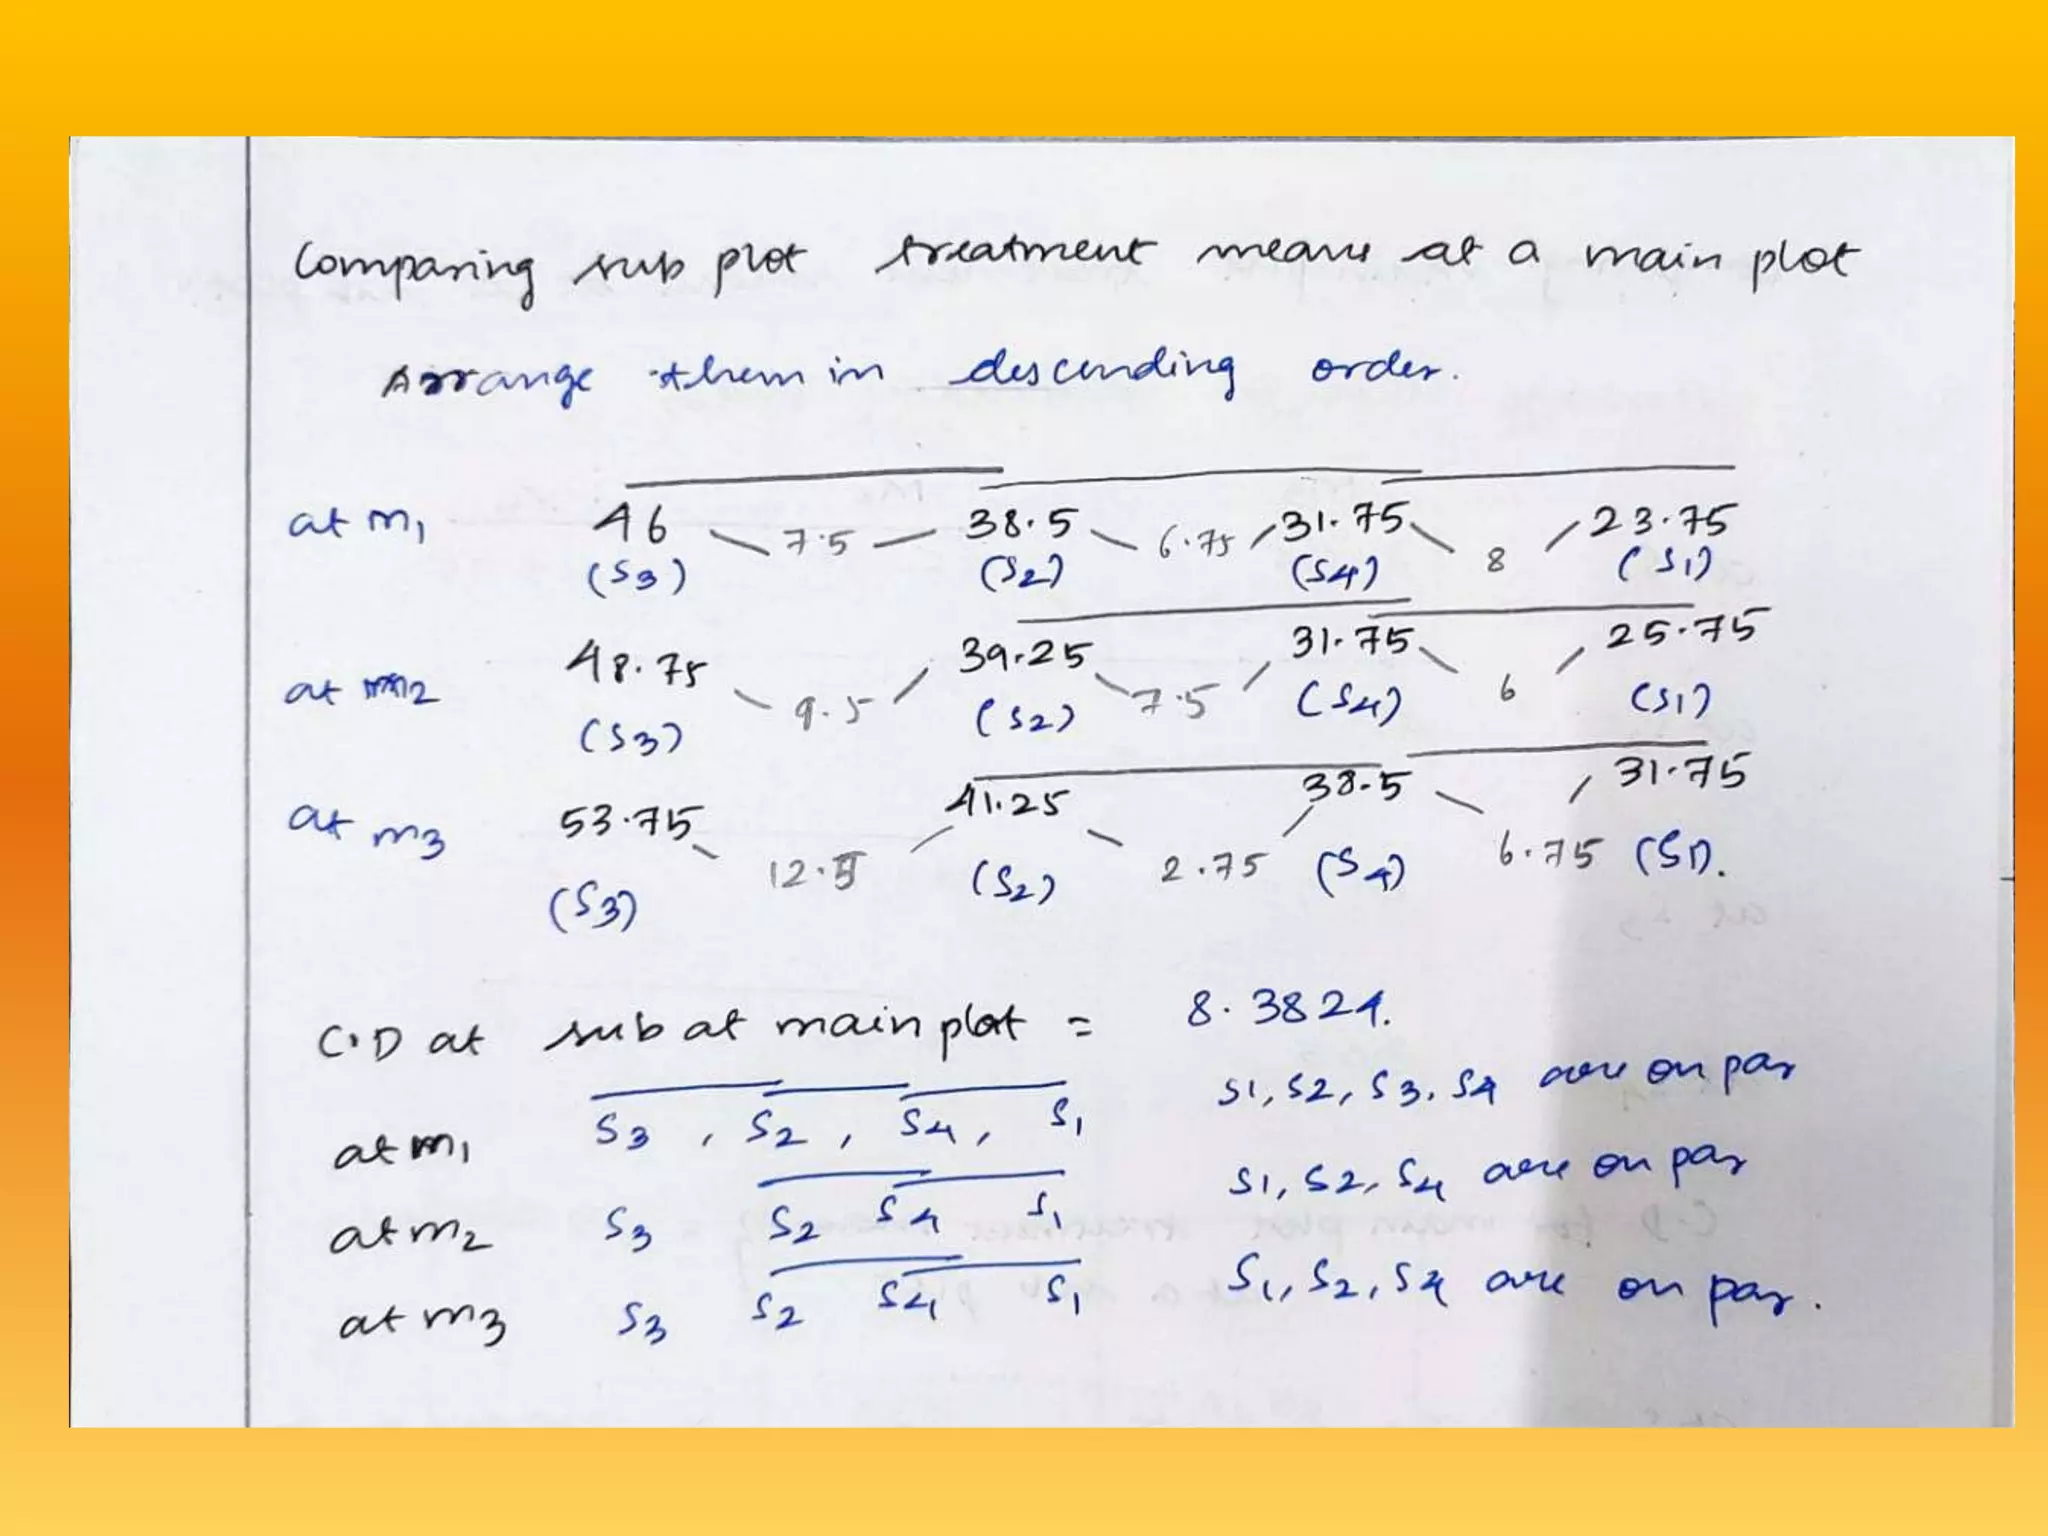 Comparing sub plot treatment means at a main plot
Arrange them in descending order.
at m1 46 7.5 38.5 6.75 31.75 8 23.75
(S3) (S2) (S4) (S1)
at m2 48.75 9.5 39.25 7.5 31.75 6 25.75
(S3) (S2) (S4) (S1)
at m3 53.75 12.5 41.25 2.75 38.5 6.75 31.75
(S3) (S2) (S4) (S1).
C.D at sub at main plot = 8.3824.
at m1 S3, S2, S4, S1 S1, S2, S3, S4 are on par
at m2 S3 S2 S4 S1 S1, S2, S4 are on par
at m3 S3 S2 S4 S1 S1, S2, S4 are on par.